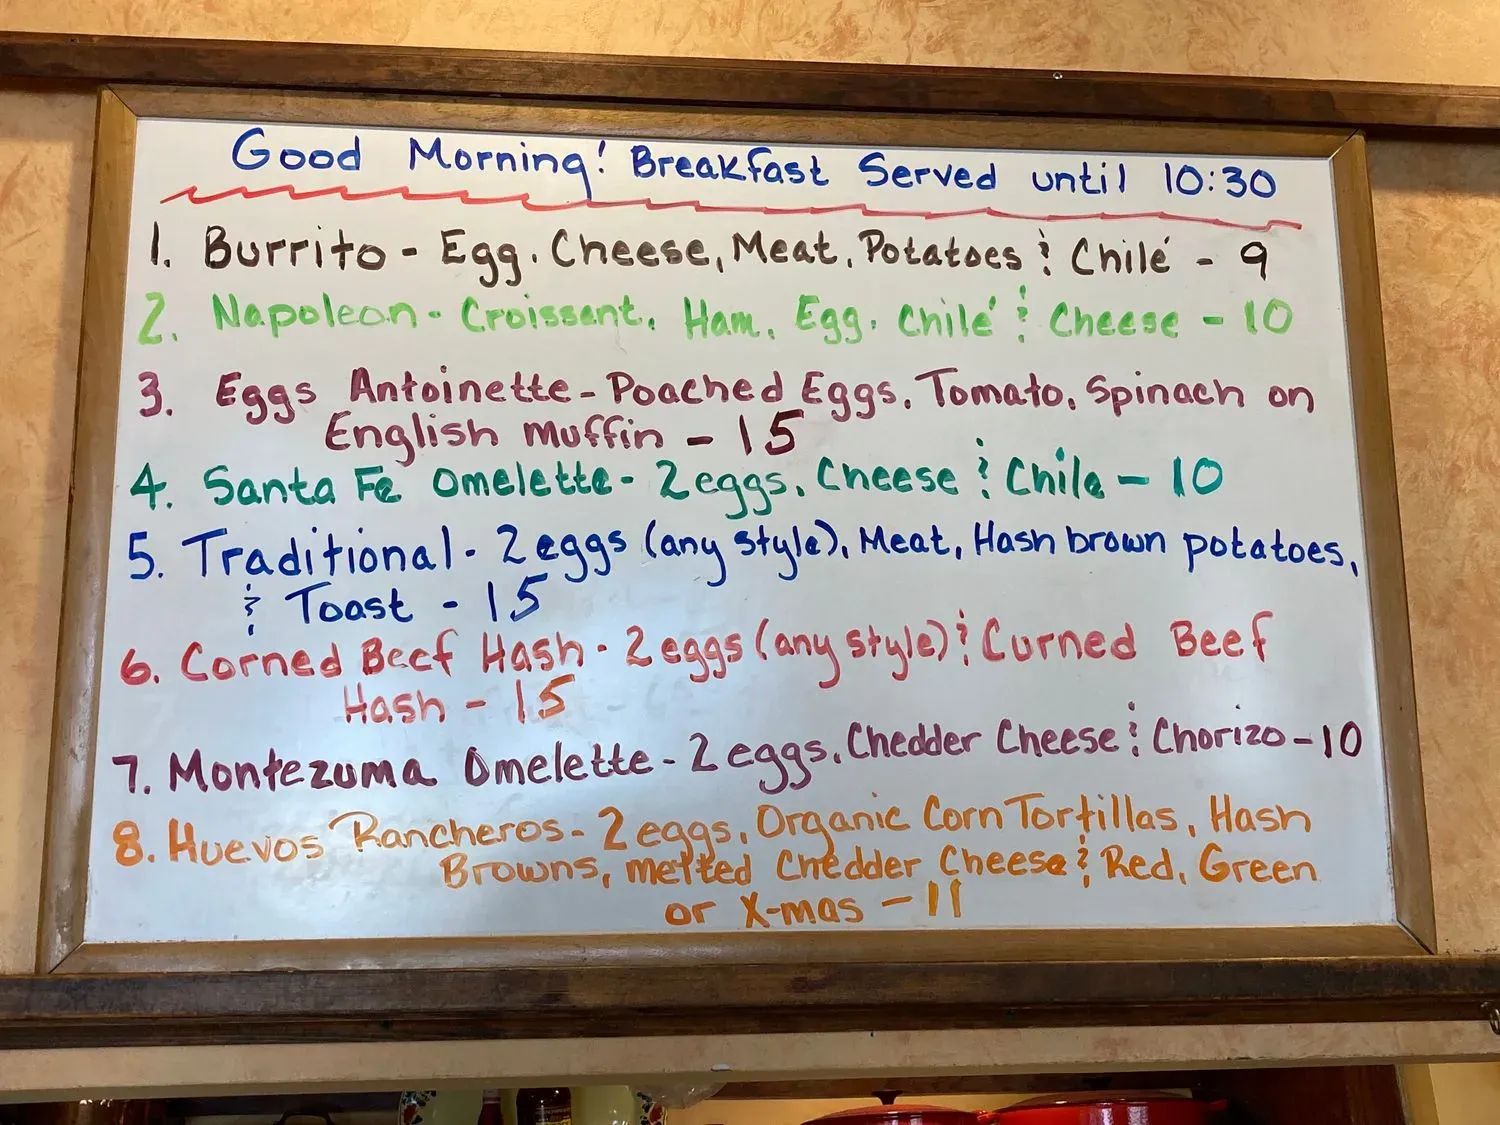 Good Morning! Breakfast Served until 10:30
1. Burrito - Egg, Cheese, Meat, Potatoes & Chilé - 9
2. Napoleon - Croissant, Ham, Egg, Chilé & Cheese - 10
3. Eggs Antoinette - Poached Eggs, Tomato, Spinach on
English muffin - 15
4. Santa Fe Omelette - 2 eggs, Cheese & Chile - 10
5. Traditional - 2 eggs (any style), Meat, Hash brown potatoes,
& Toast - 15
6. Corned Beef Hash - 2 eggs (any style) & Curned Beef
Hash - 15
7. Montezuma Omelette - 2 eggs, Chedder Cheese & Chorizo - 10
8. Huevos Rancheros - 2 eggs, Organic Corn Tortillas, Hash
Browns, melted Chedder Cheese & Red, Green
or X-mas - 11